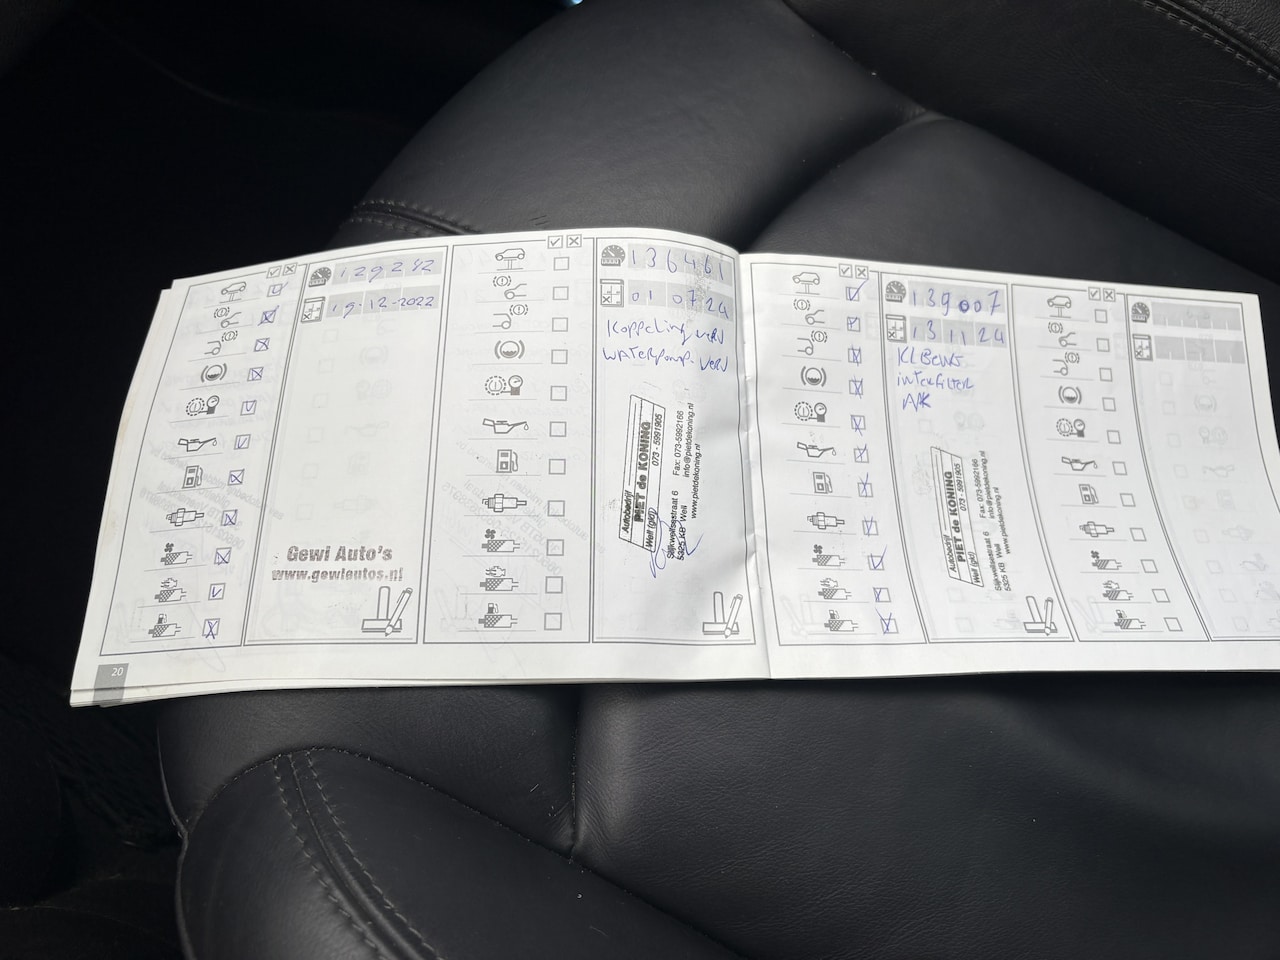 129242
19-12-2022
Gewi Auto's
www.gewiautos.nl
20
136461
01 07 24
Koppeling verv
Waterpomp. verv
Autobedrijf
PIET de KONING
Well (gld) 073 - 5991905
Slijkwellsestraat 6 Fax: 073-5992166
5325 KB Well info@pietdekoning.nl
www.pietdekoning.nl
139007
13 11 24
Kl Beurt
interfilter
APK
Autobedrijf
PIET de KONING
Well (gld) 073 - 5991905
Slijkwellsestraat 6 Fax: 073-5992166
5325 KB Well info@pietdekoning.nl
www.pietdekoning.nl